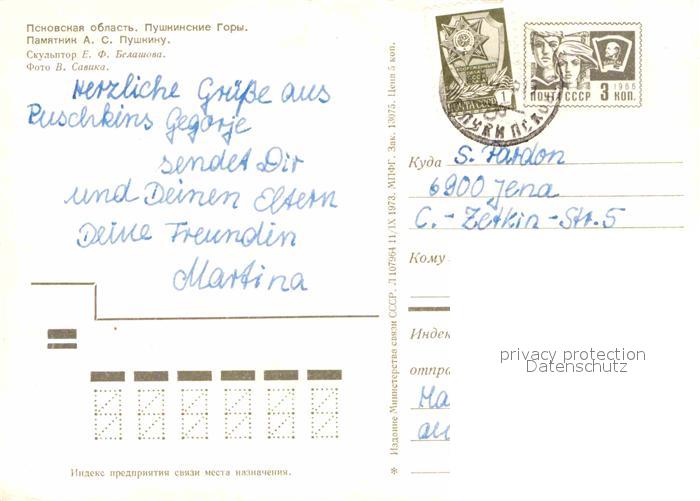 Псковская область. Пушкинские Горы.
Памятник А. С. Пушкину.
Скульптор Е. Ф. Белашова.
Фото В. Савика.
Herzliche Grüße aus
Puschkins Gegorje
sendet Dir
und Deinen Eltern
Deine Freundin
Martina
Издание Министерства связи СССР. Л 107964 11/IX 1973. МПФГ. Зак. 13075. Цена 5 коп.
ПОЧТА СССР 1
1966
ПОЧТА СССР 3 КОП.
Куда S. Pardon
6900 Jena
C.-Zetkin-Str. 5
Кому
Индек
отпра
Ma
privacy protection
Datenschutz
Индекс предприятия связи места назначения.